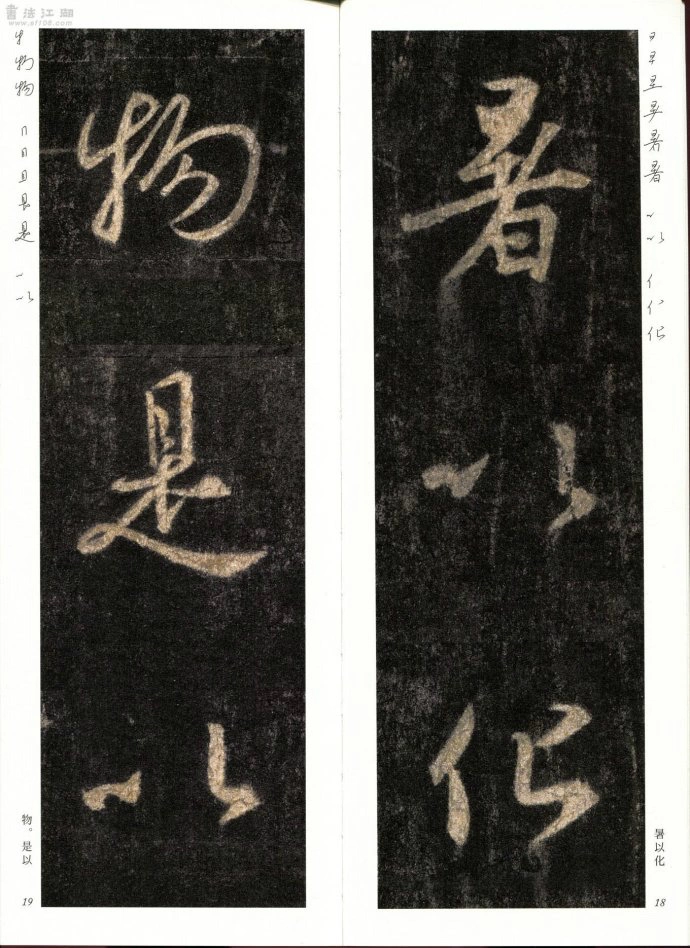 書法江湖
www.sf108.com
暑以化
暑以化
18
物是以
物。是以
19